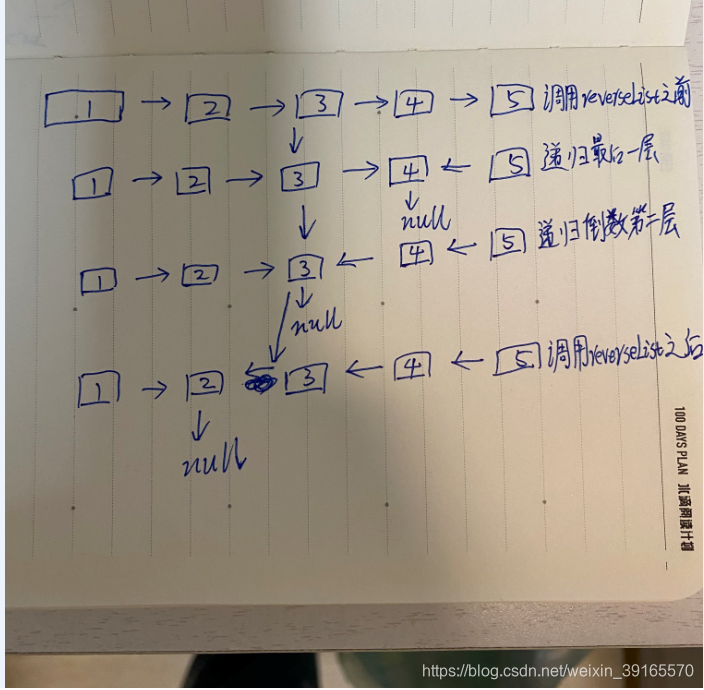 1 → 2 → 3 → 4 → 5 调用reverseList之前
↓
1 → 2 → 3 → 4 ← 5 递归最后一层
↓ ↓
null
1 → 2 → 3 ← 4 ← 5 递归倒数第二层
↓
null
1 → 2 ← 3 ← 4 ← 5 调用reverseList之后
↓
null
100 DAYS PLAN 水滴阅读计划
https://blog.csdn.net/weixin_39165570